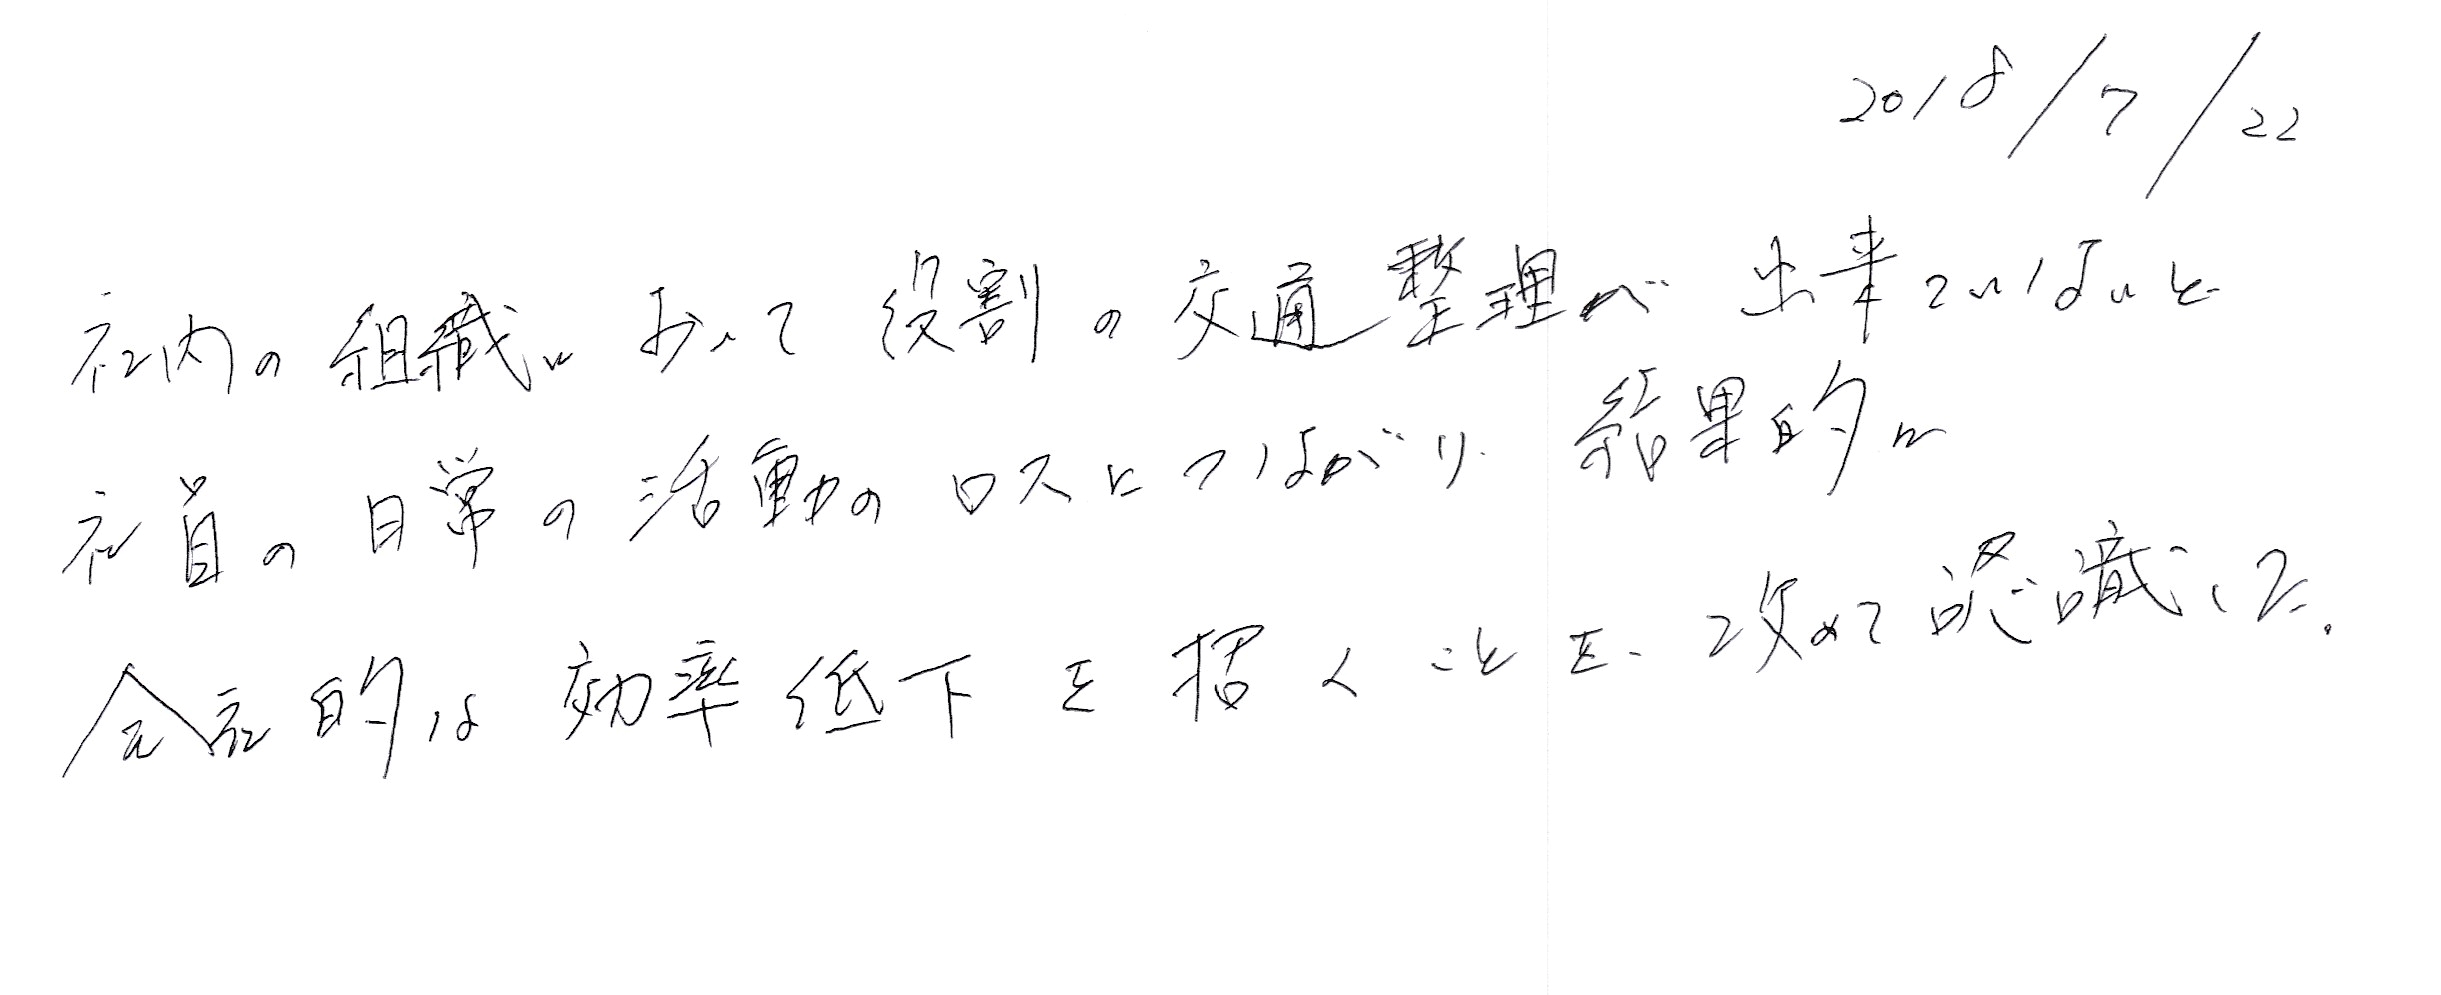 2018/7/22
社内の組織において役割の交通整理が出来ていないと
社員の日常の活動のロスにつながり、結果的に
会社的な効率低下を招くことを、改めて認識した。